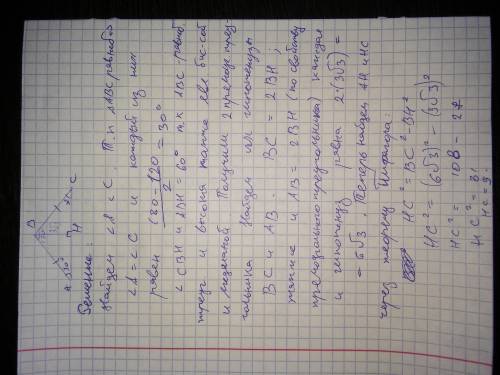 B
A 30° H 30° C
Решение:
Найдем ∠A и ∠C. Т.к. △ABC равнобед
∠A = ∠C и каждый из них
равен (180 - 120)/2 = 30°
∠CBH и ∠ABH = 60° т.к. ABC равноб.
треуг и высота также явл бис-сой
и медианой. Получили 2 прямоуг. треу
гольника. Найдем их гипотенузы
BC и AB. BC = 2BH,
также и AB = 2BH (по свойству
прямоугольного треугольника) каждая
и гипотенуза равна 2·(3√3) =
= 6√3. Теперь найдем AH и HC
через теорему Пифагора:
HC² = BC² - BH²
HC² = (6√3)² - (3√3)²
HC² = 108 - 27
HC² = 81
HC = 9